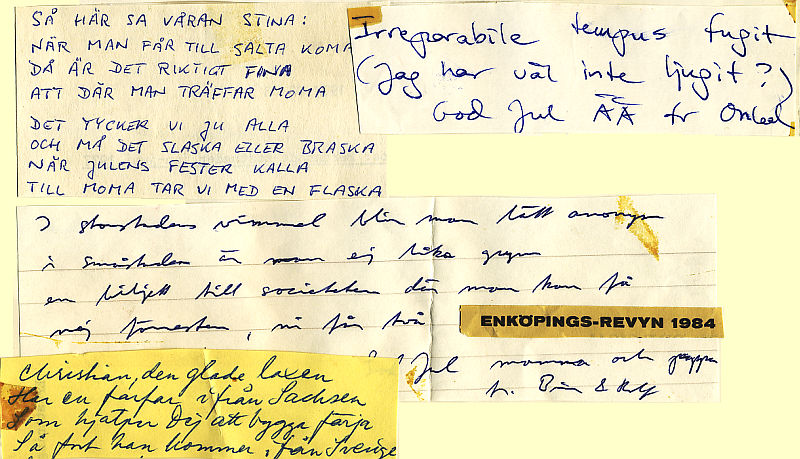 SÅ HÄR SA VÅRAN STINA:
NÄR MAN FÅR TILL SALTA KOMA
DÅ ÄR DET RIKTIGT FINA
ATT DÄR MAN TRÄFFAR MOMA
DET TYCKER VI JU ALLA
OCH MÅ DET SLASKA ELLER BRASKA
NÄR JULENS FESTER KALLA
TILL MOMA TAR VI MED EN FLASKA
Irreparabile tempus fugit
(Jag har väl inte ljugit?)
God Jul ÄÄ fr Onkel
I storstadens vimmel blir man lätt anonym
i småstaden är man ej lika grym
en biljett till societeten där man kan få
nej förresten, ni får två
ENKÖPINGS-REVYN 1984
Jul mamma och pappa
fr.
Christian, den glade laxen
Har en farfar ifrån Sachsen
Som hjälper Dej att bygga färja
Så fort han kommer ifrån Sverige